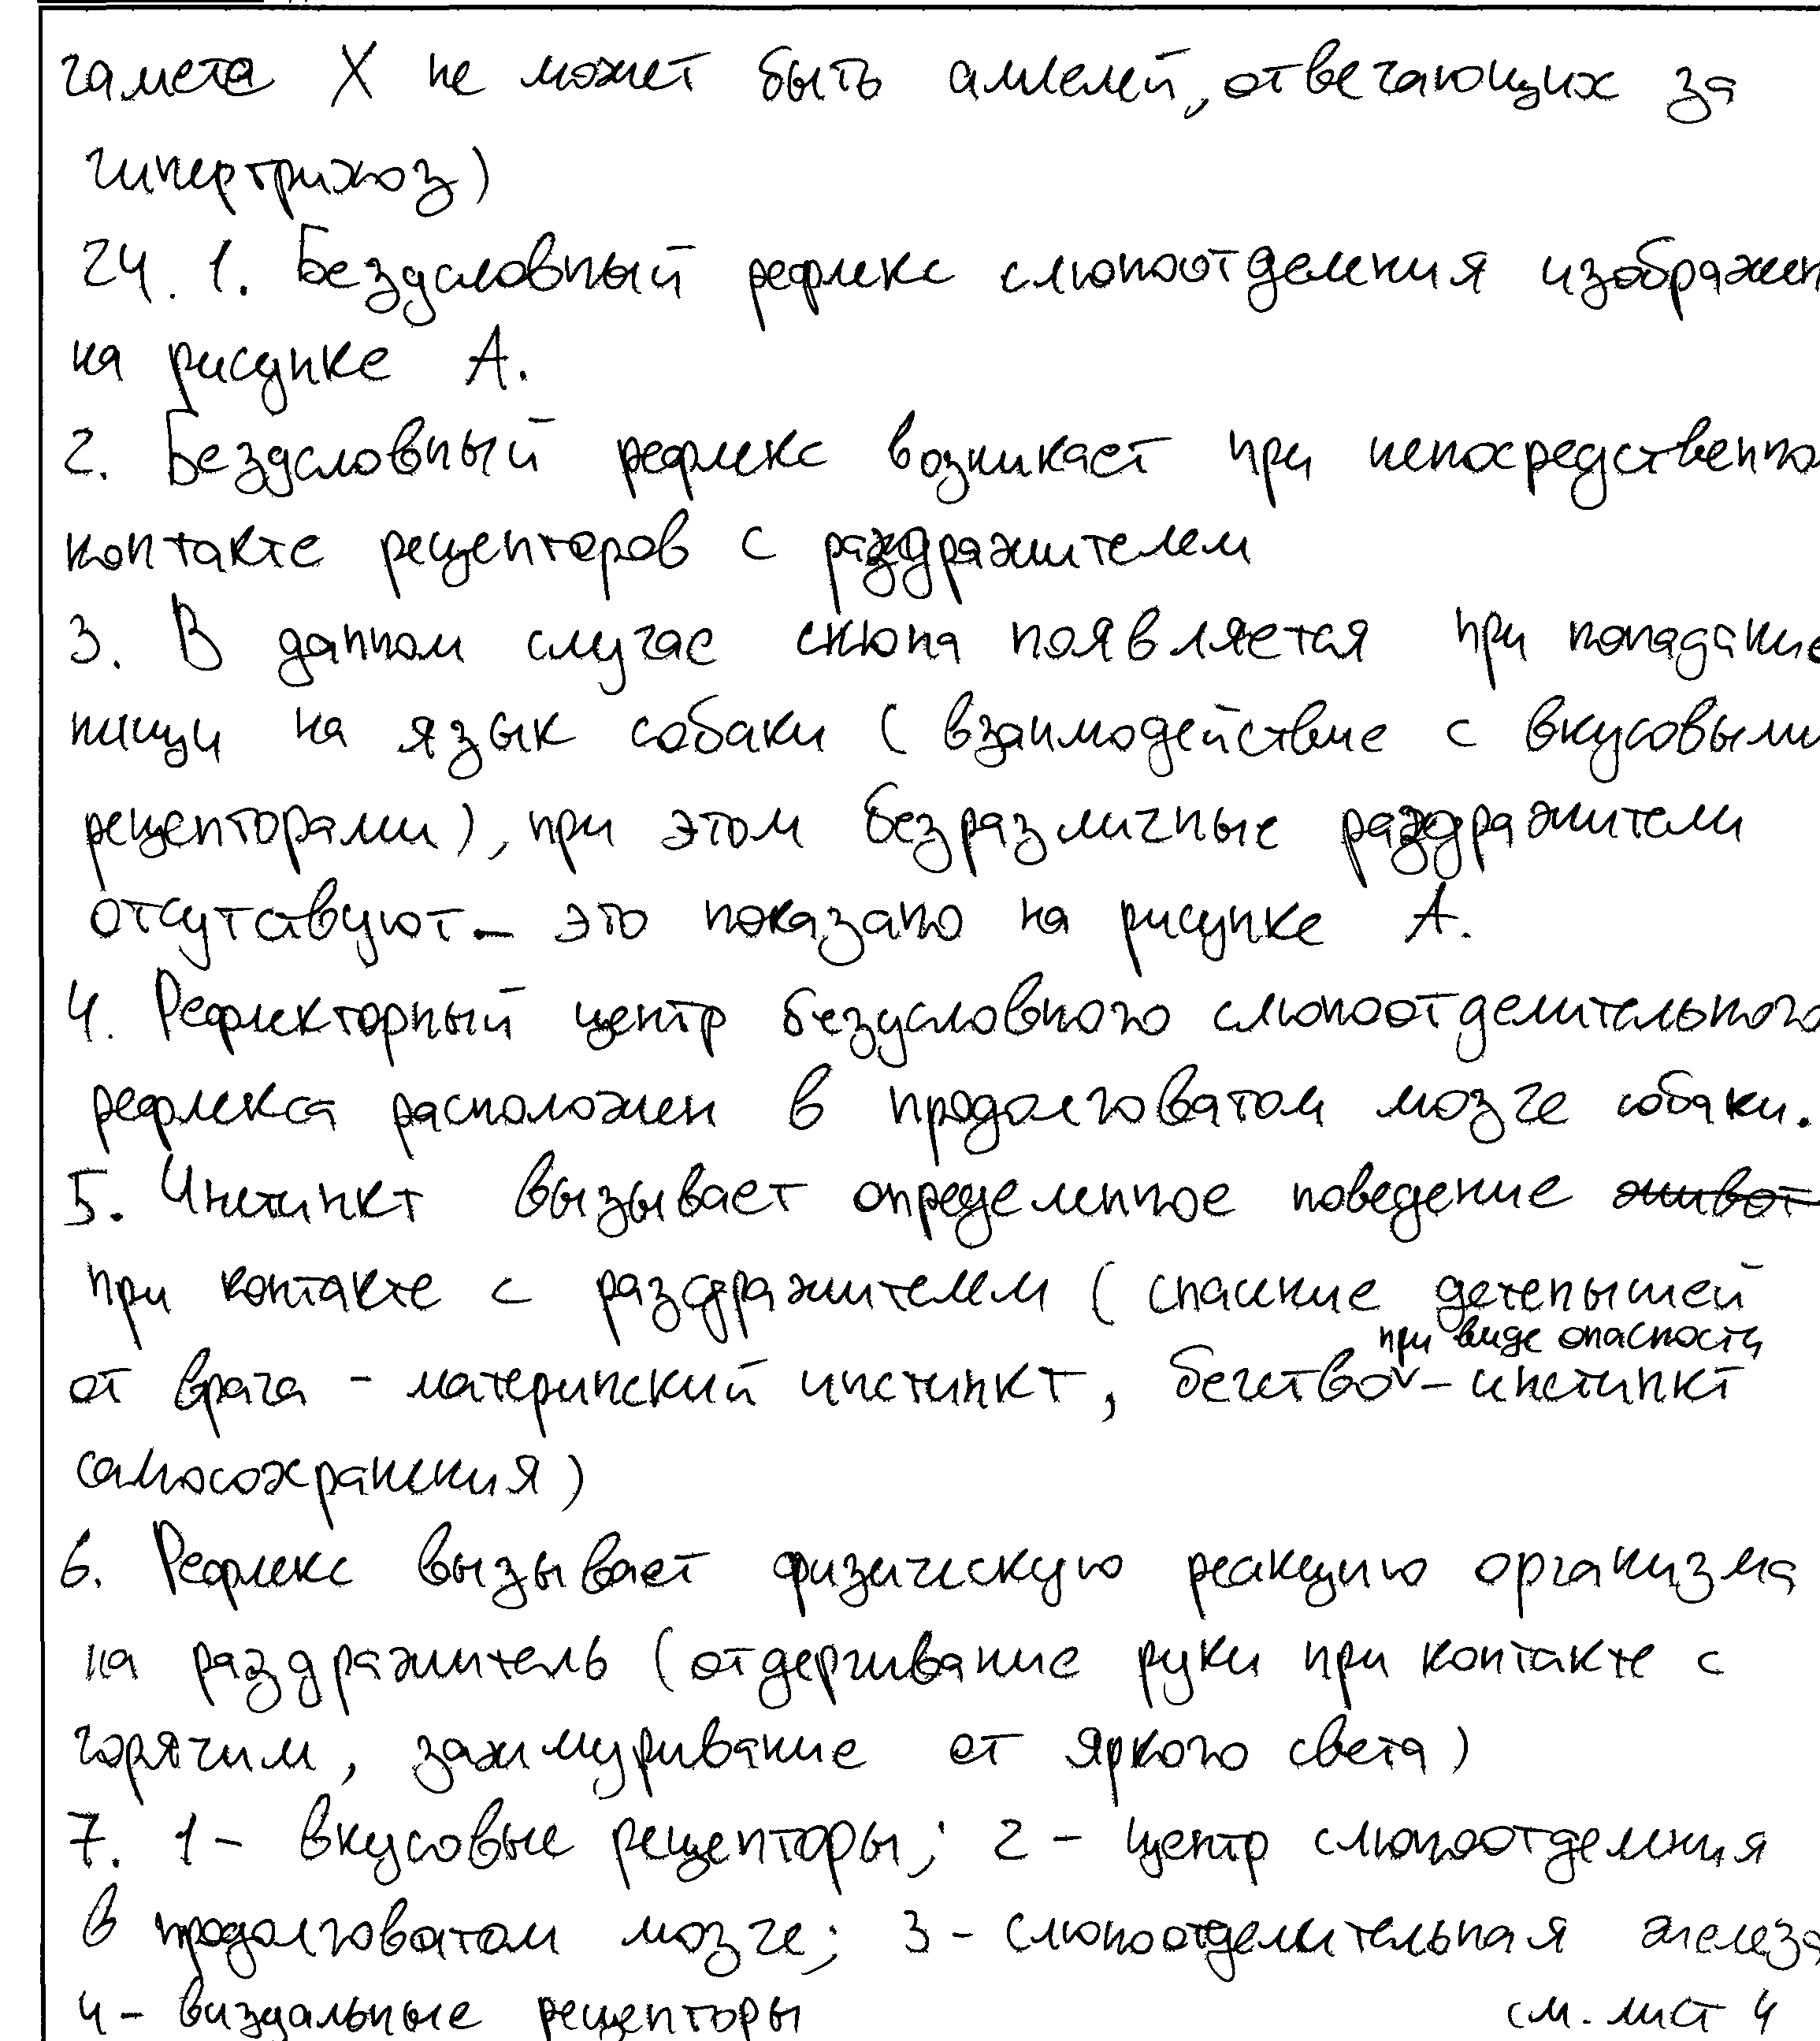 гамета X не может быть аллелей, отвечающих за
гипертрихоз)
24. 1. Безусловный рефлекс слюноотделения изображен
на рисунке А.
2. Безусловный рефлекс возникает при непосредственно
контакте рецепторов с раздражителем
3. В данном случае слюна появляется при попадание
пищи на язык собаки (взаимодействие с вкусовыми
рецепторами), при этом безразличные раздражители
отсутствуют – это показано на рисунке А.
4. Рефлекторный центр безусловного слюноотделительного
рефлекса расположен в продолговатом мозге собаки.
5. Инстинкт вызывает определенное поведение живот
при контакте с раздражителем (спасение детенышей
при виде опасности
от врага – материнский инстинкт, бегство – инстинкт
самосохранения)
6. Рефлекс вызывает физическую реакцию организма
на раздражитель (отдергивание руки при контакте с
горячим, зажмуривание от яркого света)
7. 1 – вкусовые рецепторы; 2 – центр слюноотделения
в продолговатом мозге; 3 – слюноотделительная железа
4 – визуальные рецепторы см. лист 4